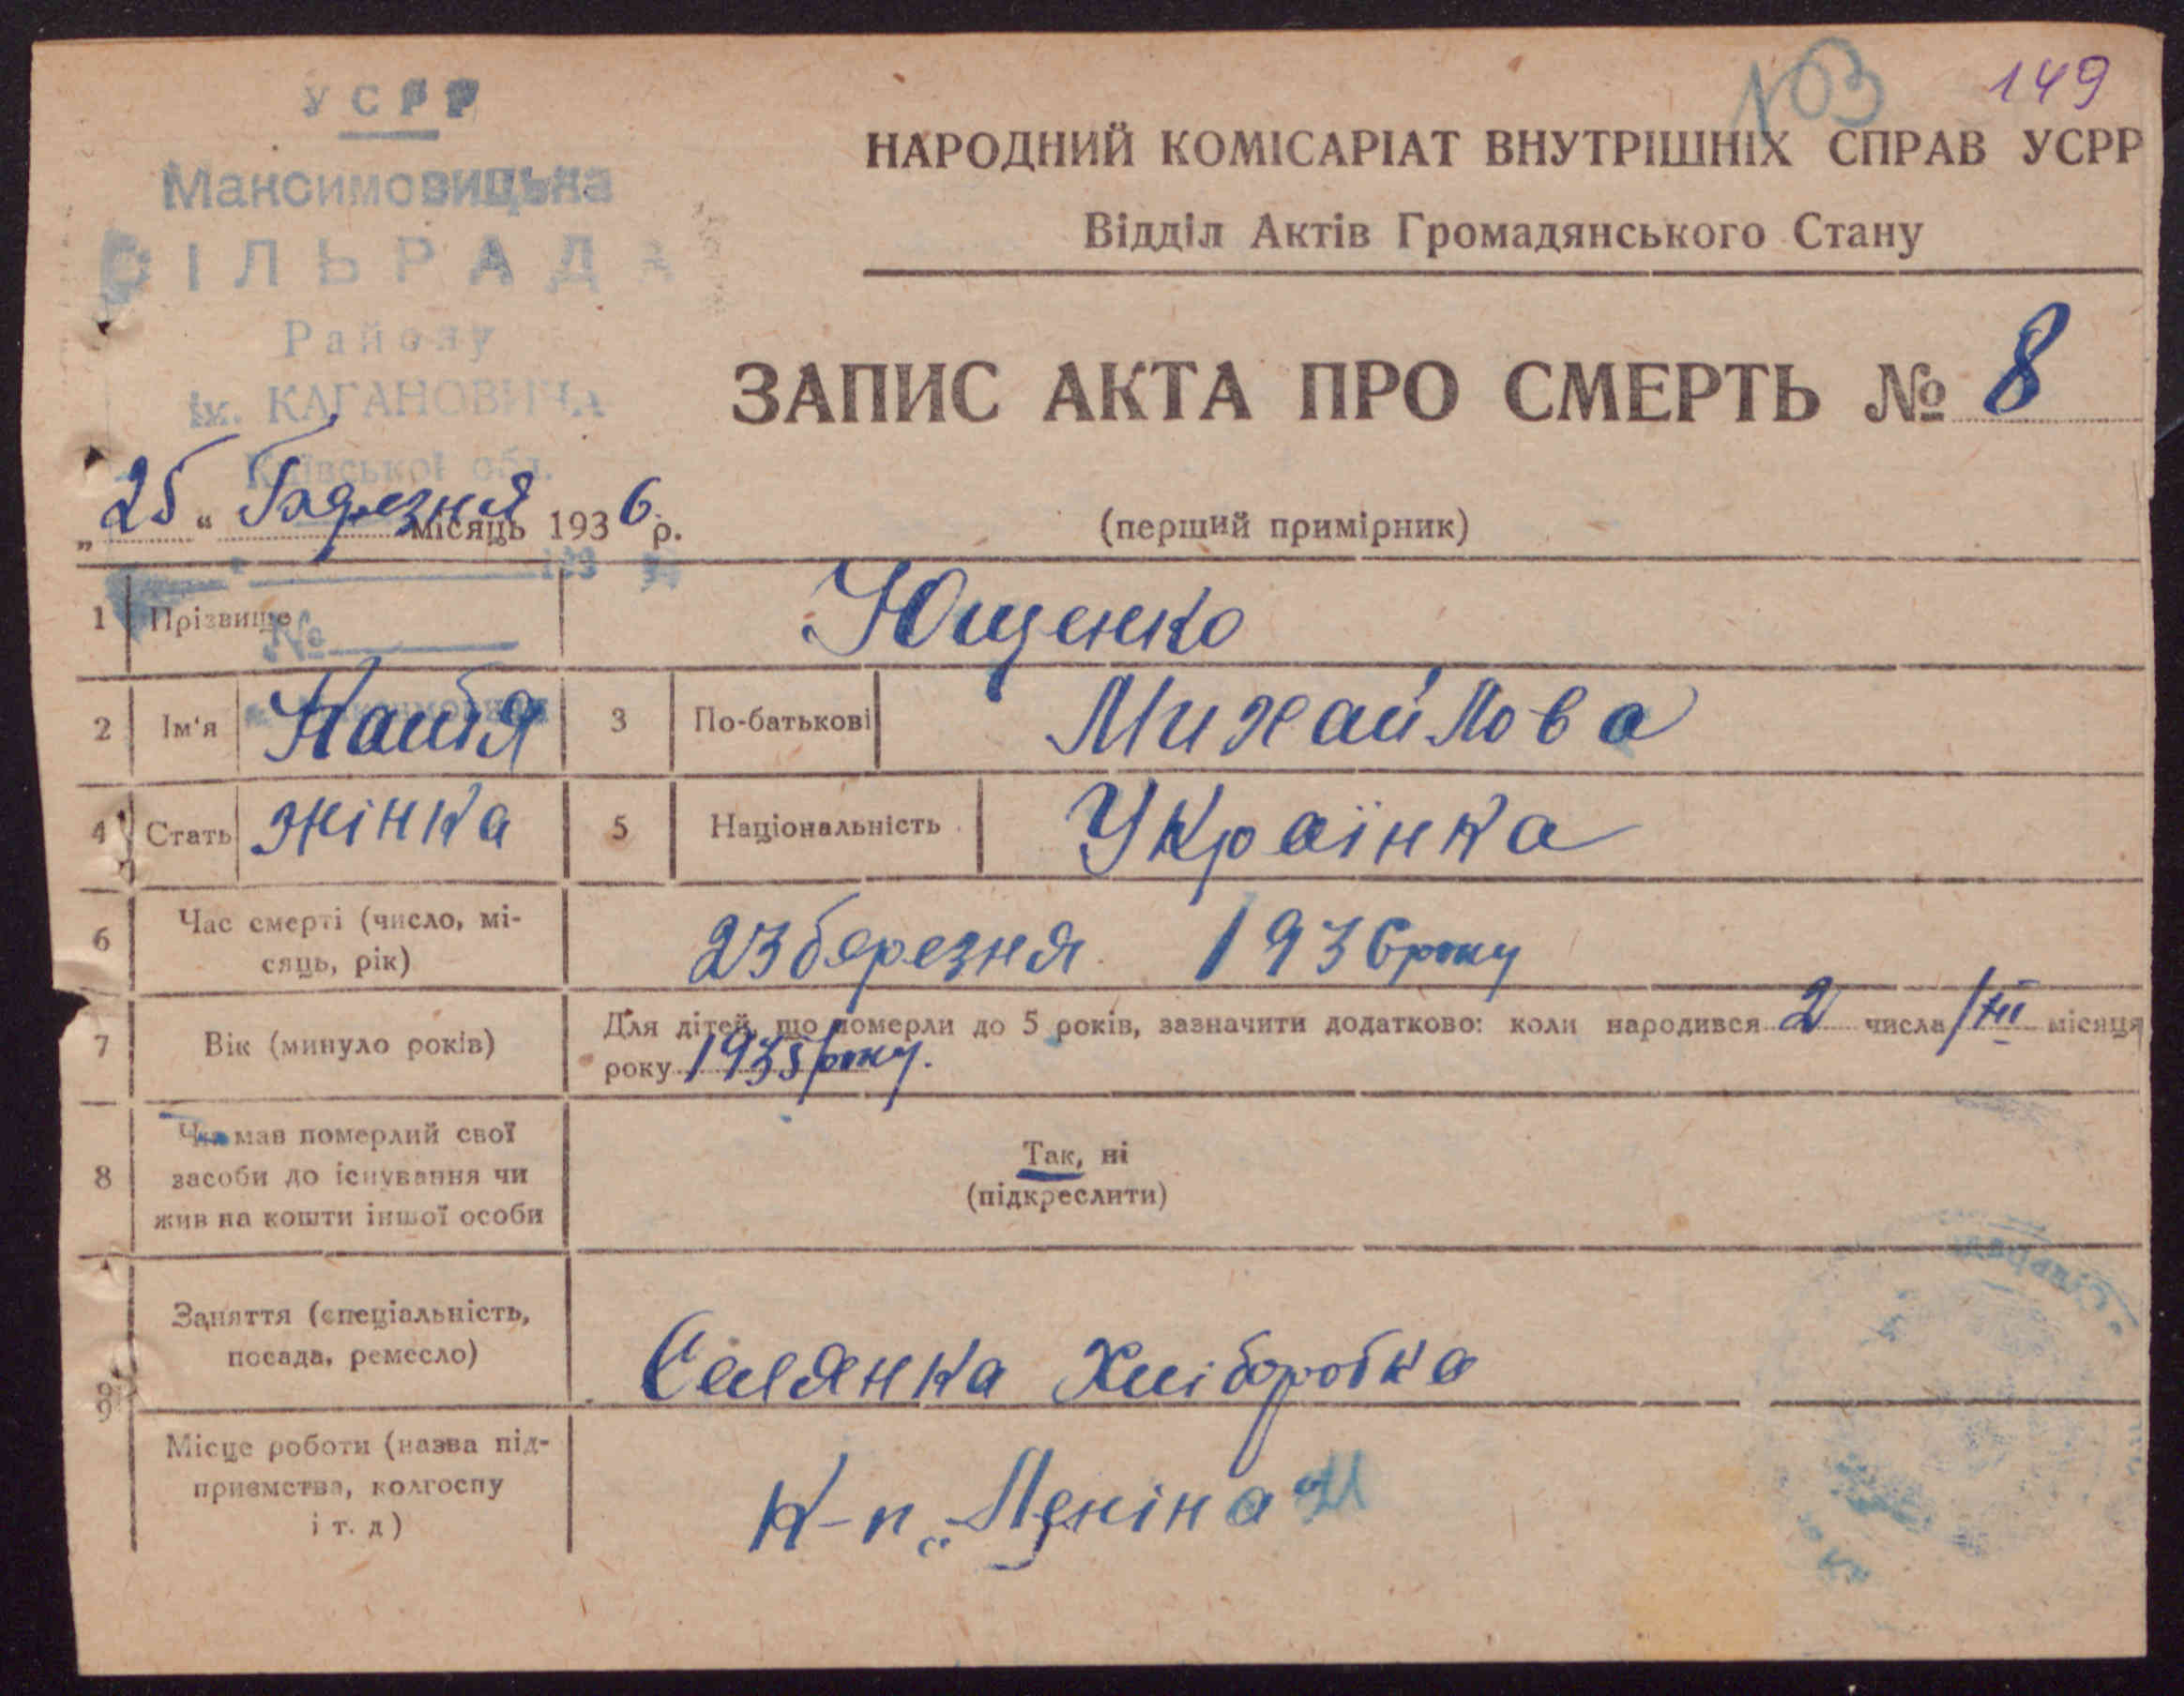 103 149
УСРР
Максимовицька
СІЛЬРАДА
Району
ім. КАГАНОВИЧА
Київської обл.
НАРОДНИЙ КОМІСАРІАТ ВНУТРІШНІХ СПРАВ УСРР
Відділ Актів Громадянського Стану
ЗАПИС АКТА ПРО СМЕРТЬ № 8
„25“ Березня місяць 1936 р.
(перший примірник)
193
№
1 Прізвище Ющенко
2 Ім'я 3 По-батькові Михайлова
4 Стать жінка 5 Національність Українка
6 Час смерті (число, мі-
сяць, рік) 23 березня 1936 року
7 Вік (минуло років) Для дітей, що померли до 5 років, зазначити додатково: коли народився 2 числа /III місяця
року 1935 року.
8 Чи мав померлий свої
засоби до існування чи
жив на кошти іншої особи
Так, ні
(підкреслити)
9 Заняття (спеціальність,
посада, ремесло) Селянка Хліборобка
Місце роботи (назва під-
приємства, колгоспу
і т. д) К-п „Леніна“